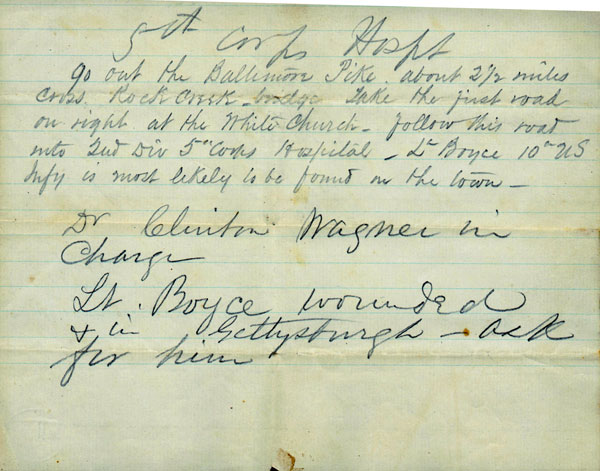 5th Corps Hospt
Go out the Baltimore Pike about 2 1/2 miles
cross Rock Creek - bridge Take the first road
on right at the White Church - follow this road
into 2nd Div 5th Corps Hospital - Lt Boyce 10th US
Infy is most likely to be found in the town -
Dr Clinton Wagner in
Charge
Lt. Boyce wounded
& in Gettysburgh - ask
for him